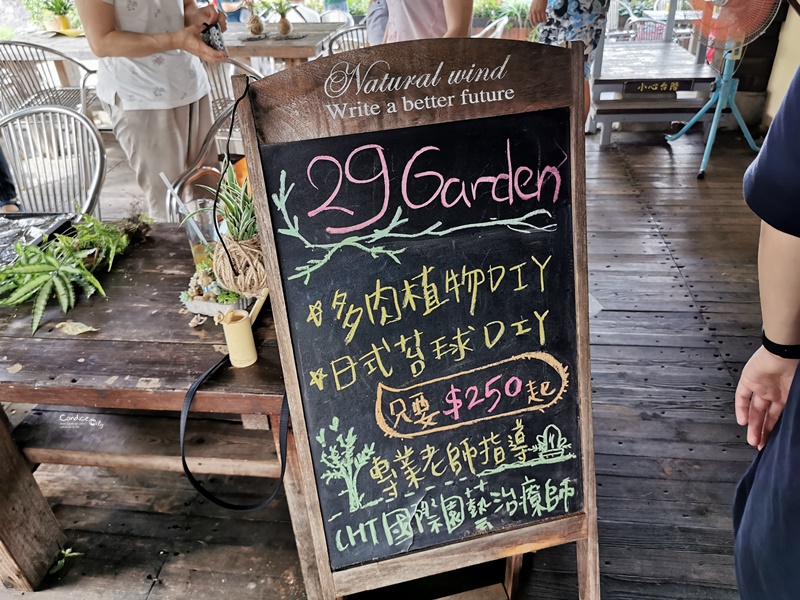 Natural wind
Write a better future
29 Garden
多肉植物DIY
日式苔球DIY
只要$250起
專業老師指導
CHT國際園藝治療師
小心台階
Candice City